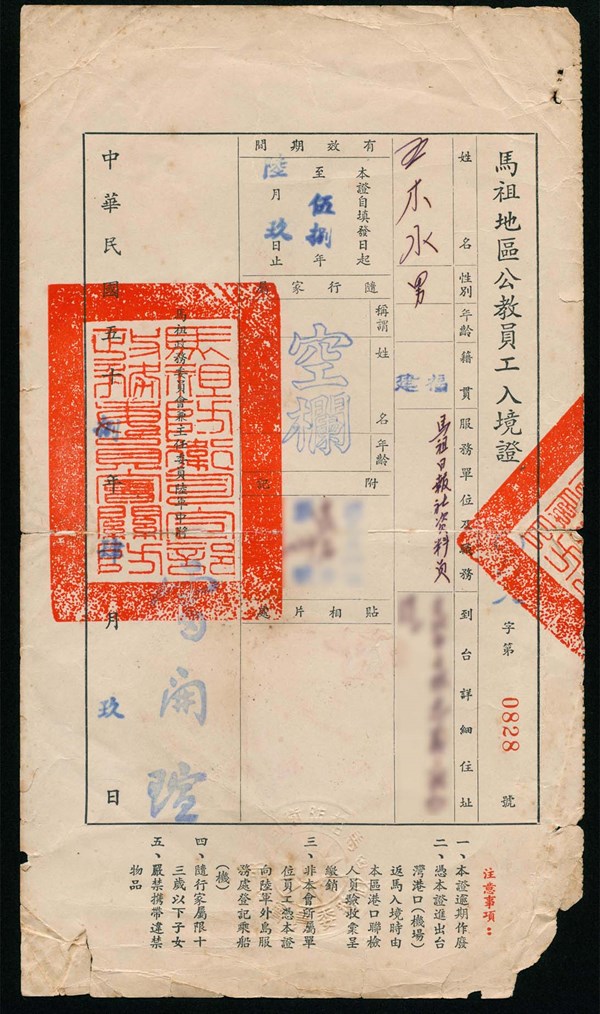 馬祖地區公教員工入境證
字第0828號
姓名
王木水
性別
男
年齡
籍貫
福建
服務單位及職務
馬祖日報社資料員
到台詳細住址
有效期間
本證自填發日起
至伍捌年
陸月玖日止
隨行家屬
稱謂
姓名
年齡
空欄
附記
貼相片處
馬祖政務委員會兼主任委員陸軍中將
雷開瑄
中華民國五十捌年肆月玖日
注意事項：
一、本證逾期作廢
二、憑本證進出台
灣港口(機場)
返馬入境時由
本區港口聯檢
人員驗收彙呈
繳銷
三、非本會所屬單
位員工憑本證
向陸軍外島服
務處登記乘船
(機)
四、隨行家屬限十
三歲以下子女
五、嚴禁携帶違禁
物品